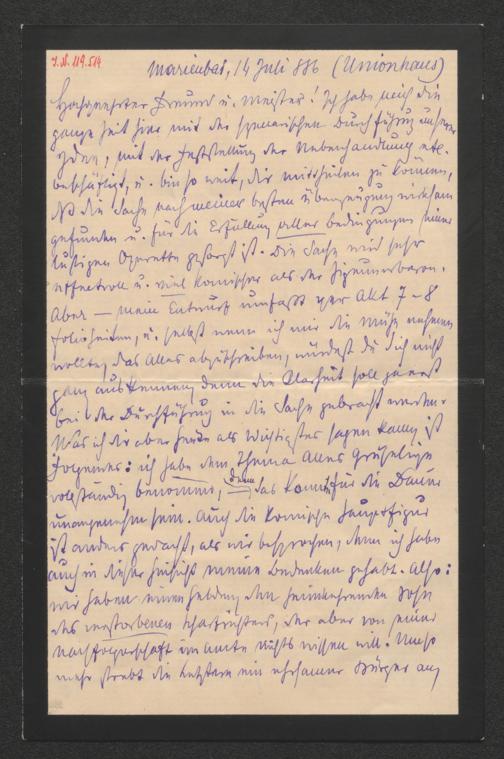 I.N. 119.514
Marienbad, 14 Juli 886 (Unionhaus)
Hochgeehrter Freund u. Meister! Ich habe mich die
ganze Zeit hier mit der scenarischen Durchführung unserer
Idee, mit der Feststellung der Nebenhandlung etc.
beschäftigt, u. bin so weit, Dir mittheilen zu können,
daß die Sache nach meiner besten Überzeugung wirksam
gefunden u. für die Erfüllung aller Bedingungen einer
lustigen Operette gesorgt ist. Die Sache wird sehr
effectvoll u. viel komischer als der Zigeunerbaron.
Aber — mein Entwurf umfaßt per Akt 7–8
Folioseiten, u. selbst wenn ich mir die Mühe nehmen
wollte, das Alles abzuschreiben, würdest Du Dich nicht
ganz auskennen, denn die Klarheit soll ja erst
bei der Durchführung in die Sache gebracht werden.
Was ich Dir aber heute als Wichtigstes sagen kann, ist
Folgendes: ich habe dem Thema alles Gruselige
vollständig benommen, denn das könnte für die Dauer
unangenehm sein. Auch die komische Hauptfigur
ist anders gedacht, als wir besprochen, denn ich habe
auch in dieser Hinsicht meine Bedenken gehabt. Also:
wir haben einen Helden, den heimkehrenden Sohn
des verstorbenen Scharfrichters, der aber von einer
Nachfolgerschaft im Amte nichts wissen will. Umso
mehr strebt die Letztere ein ehrsamer Bürger an,